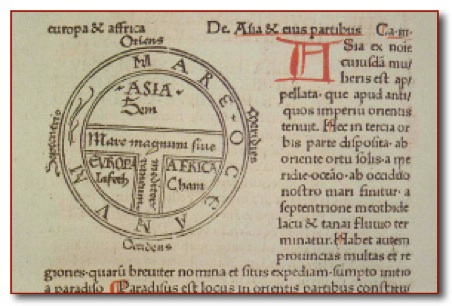 europa & affrica
De. Asia & eius partibus
Oriens
MARE OCEANVM
Septentrio
Meridies
ASIA
Sem
Mare magnum siue
EVROPA
Iafeth
AFRICA
Cham
Occidens
ASia ex noīe
cuiusdā mu/
lieris est ap/
pellata. que apud anti/
quos imperiū orientis
tenuit. Hec in tercia or
bis parte disposita. ab
oriente ortu solis. a me
ridie. oceāo. ab occidēo
nostro mari finitur. a
septentrione meothide
lacu & tanai fluuio ter
minatur. Habet autem
prouincias multas et re
giones. quarū breuiter nomina et situs expediam. sumpto initio
a paradiso Paradisus est locus in orientis partibus constitu